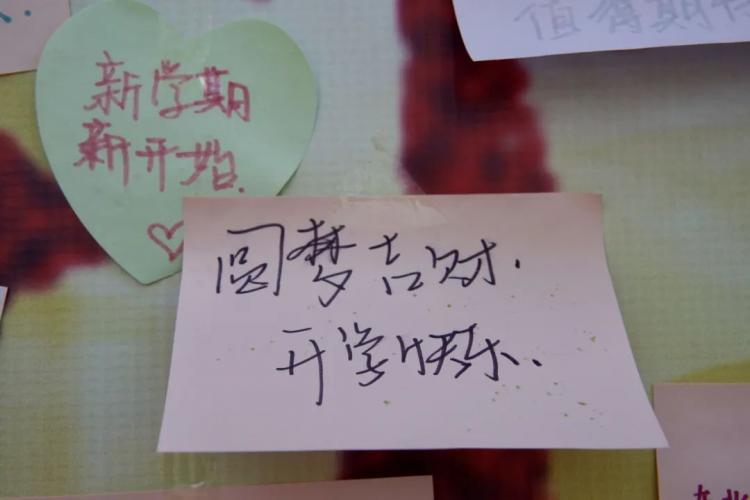 值有期待
新学期
新开始.
圆梦吉财.
开学快乐.